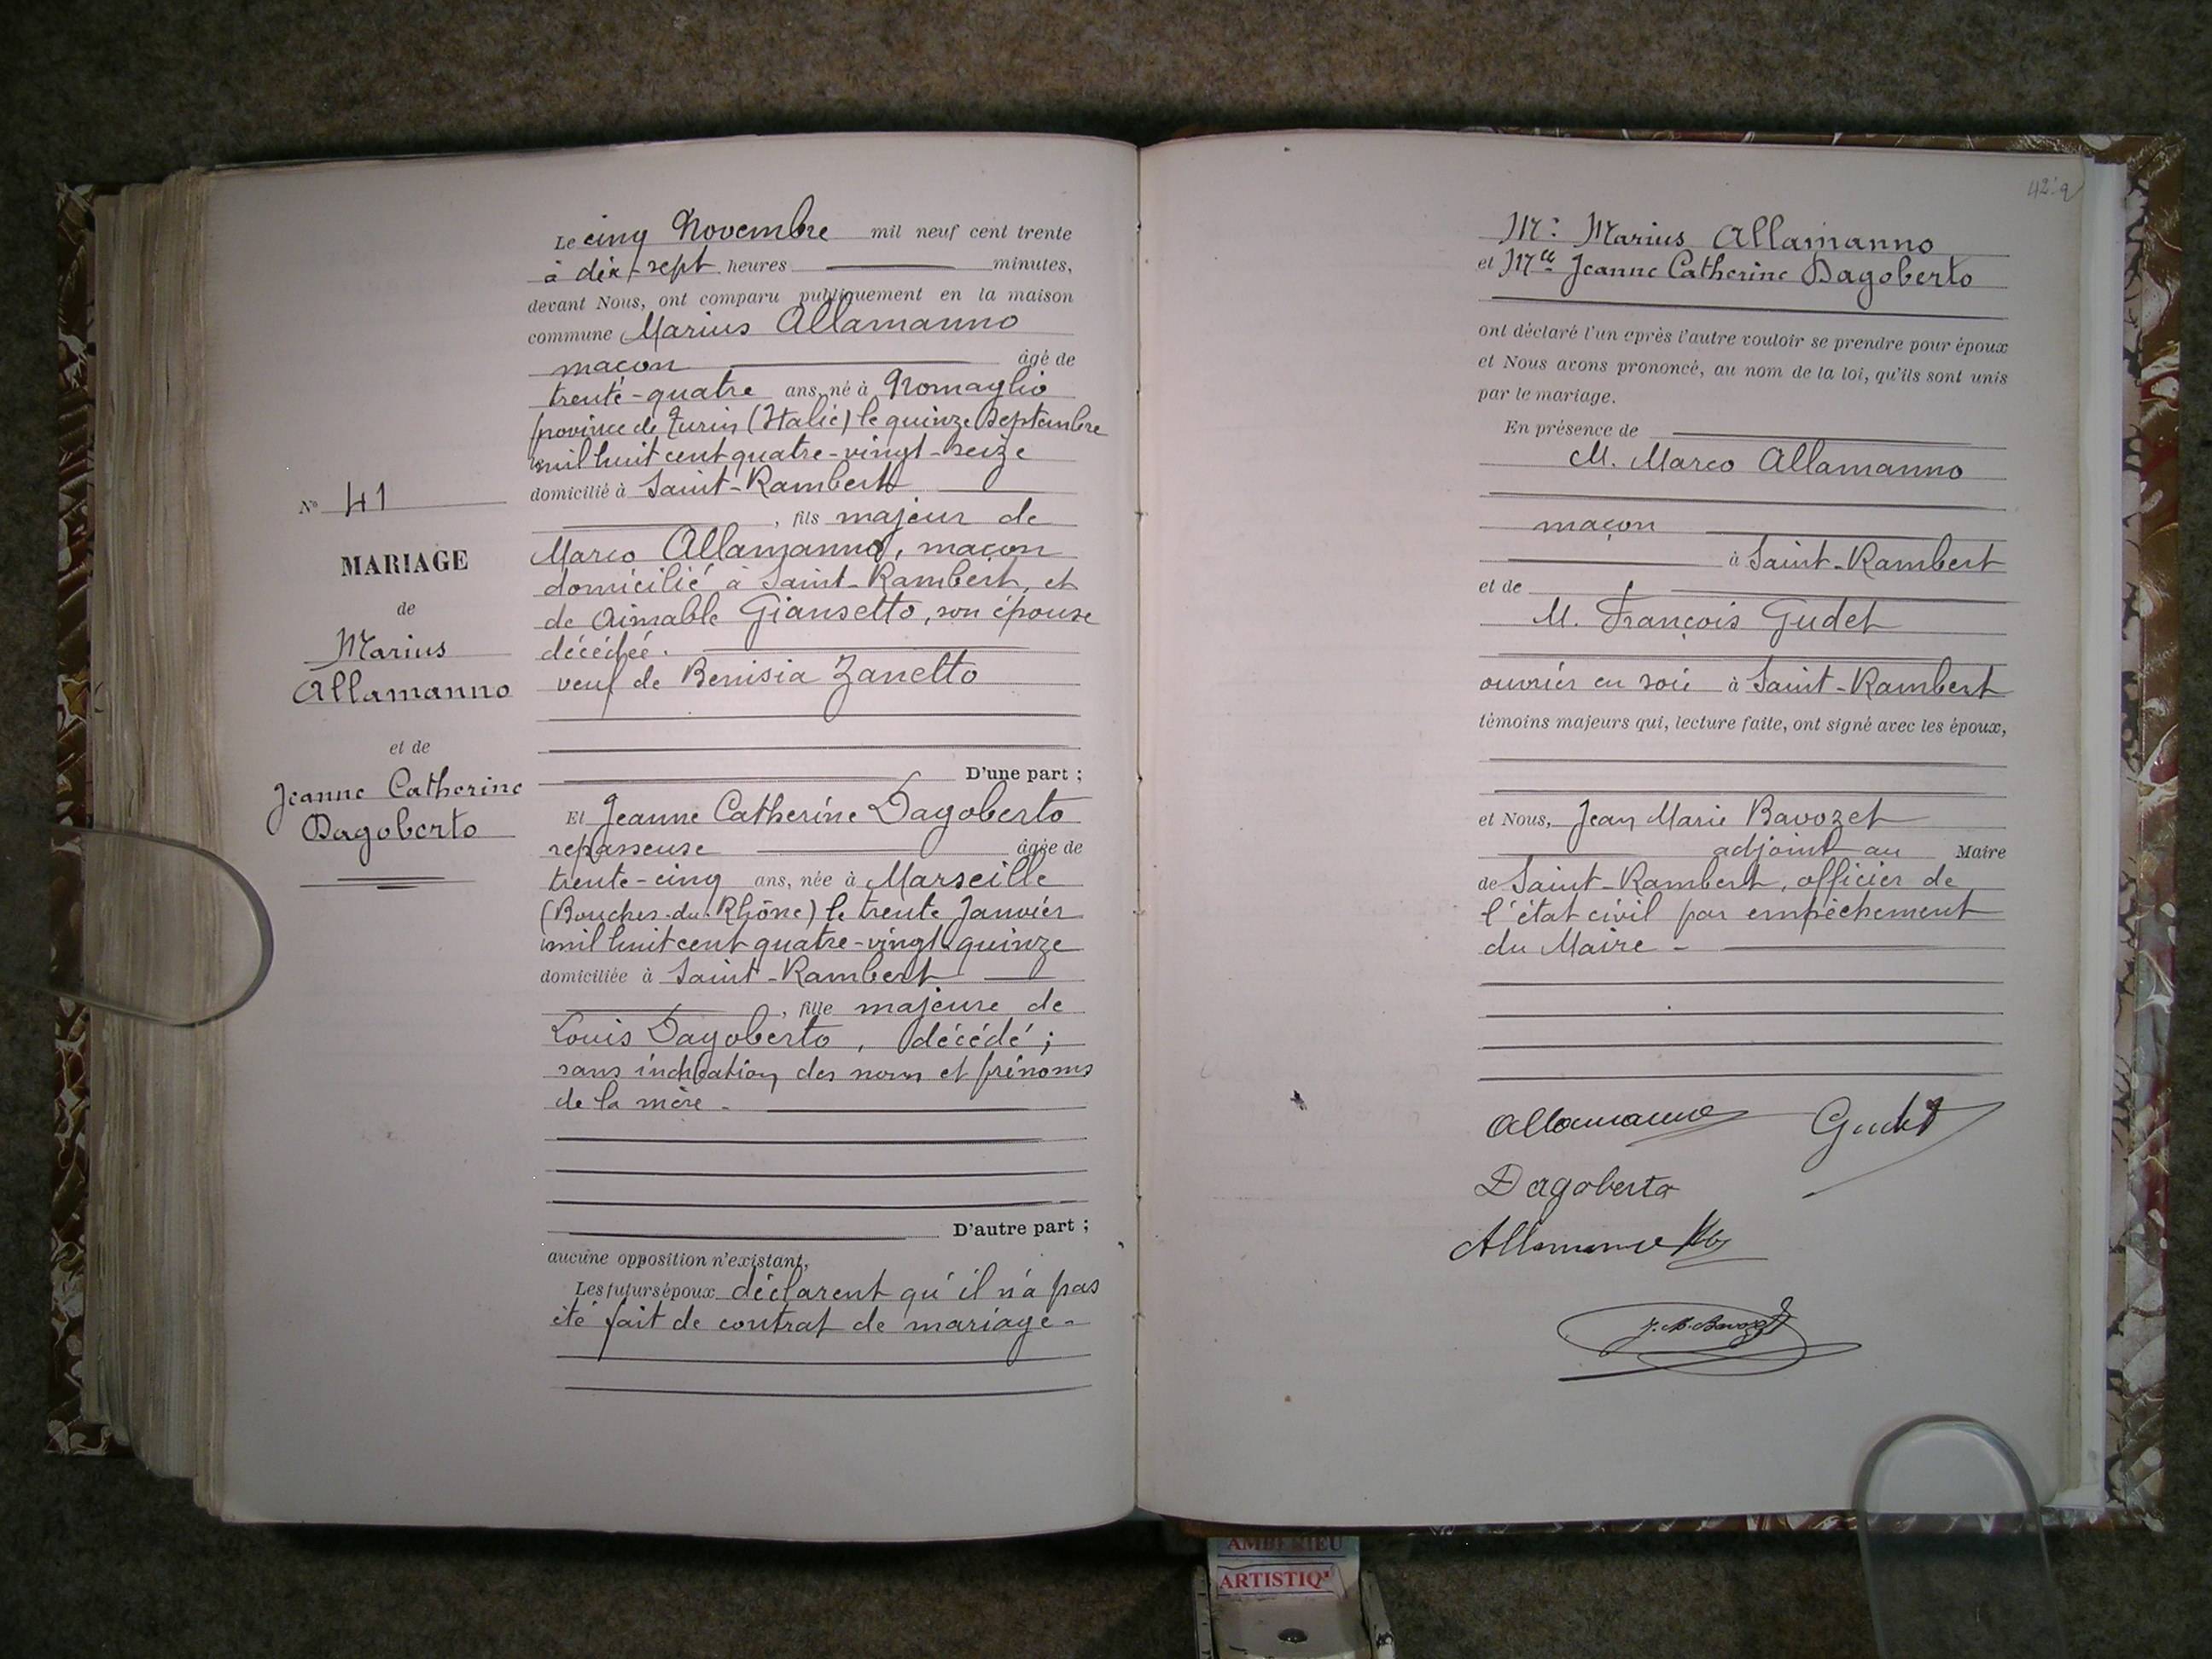 Le cinq Novembre mil neuf cent trente
à dix-sept heures minutes,
devant Nous, ont comparu publiquement en la maison
commune Marius Allamanno
maçon âgé de
trente-quatre ans, né à Nomaglio
province de Turin (Italie) le quinze Septembre
mil huit cent quatre-vingt-seize
domicilié à Saint-Rambert
, fils majeur de
Marco Allamanno, maçon
domicilié à Saint-Rambert, et
de Aimable Giansetto, son épouse
décédée.
veuf de Benisia Zanetto
D'une part ;
Et Jeanne Catherine Dagoberto
repasseuse âgée de
trente-cinq ans, née à Marseille
(Bouches-du-Rhône) le trente Janvier
mil huit cent quatre-vingt-quinze
domiciliée à Saint-Rambert
, fille majeure de
Louis Dagoberto, décédé ;
sans indication des nom et prénoms
de la mère -
D'autre part ;
aucune opposition n'existant,
Les futurs époux déclarent qu'il n'a pas
été fait de contrat de mariage -
N° 41
MARIAGE
de
Marius
Allamanno
et de
Jeanne Catherine
Dagoberto
Mr. Marius Allamanno
et Mlle Jeanne Catherine Dagoberto
ont déclaré l'un après l'autre vouloir se prendre pour époux
et Nous avons prononcé, au nom de la loi, qu'ils sont unis
par le mariage.
En présence de
M. Marco Allamanno
maçon
à Saint-Rambert
et de
M. François Gudet
ouvrier en soie à Saint-Rambert
témoins majeurs qui, lecture faite, ont signé avec les époux,
et Nous, Jean Marie Bavozet
adjoint au Maire
de Saint-Rambert, officier de
l'état civil par empêchement
du Maire -
Allamanno Gudet
Dagoberto
Allamanno
J. M. Bavozet
AMBERIEU
ARTISTIQ